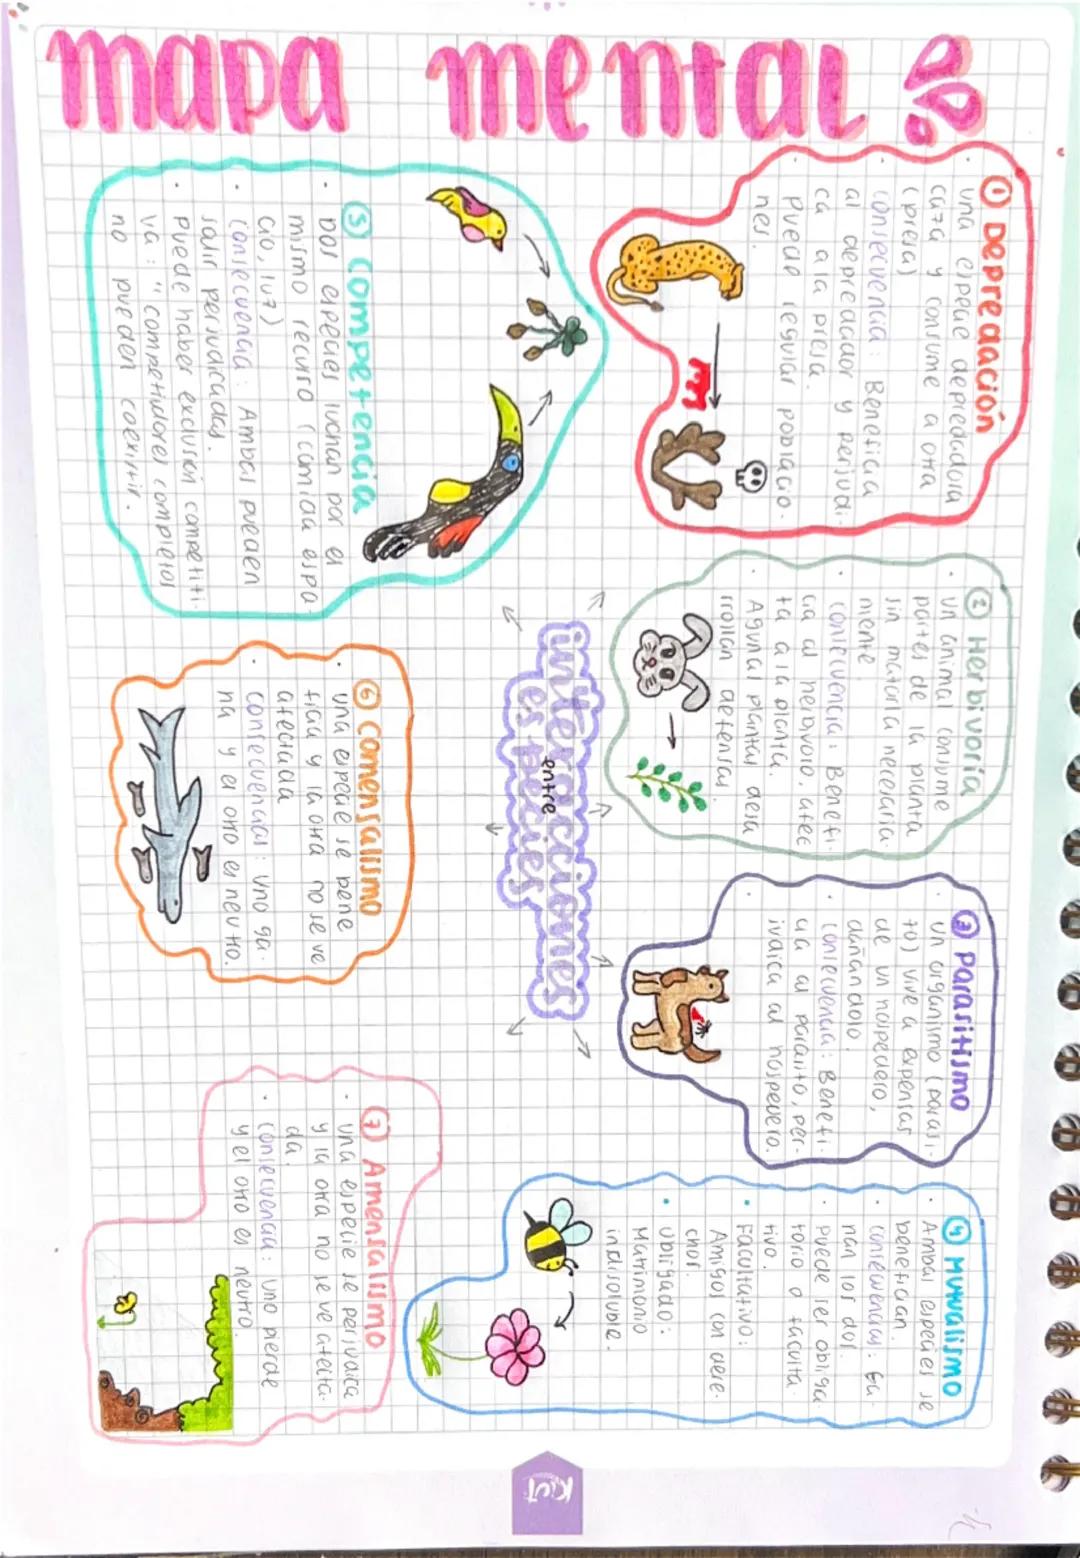 mapa mental
① Depredación
· Una especie depredadora
caza y consume a otra
(presa)
· Consecuencia: Beneficia
al depredador y perjudi-
ca a la presa.
· Puede regular poblacio-
nes.
② Herbivoría
· Un animal consume
partes de la planta
sin matarla necesaria-
mente
· Consecuencia: Benefi-
cia al herbívoro, afec
ta a la planta.
· Algunas plantas desa
rrollan defensas.
③ Parasitismo
· Un organismo (parási-
to) vive a expensas
de un hospedero,
dañandolo.
· Consecuencia: Benefi-
cia al parásito, per-
judica al hospedero.
④ Mutualismo
· Ambas especies se
benefician.
· Consecuencias: Ga-
nan los dos.
· Puede ser obliga
torio o faculta-
tivo.
• Facultativo:
Amigos con dere-
chos.
• Obligado:
Matrimonio
indisoluble.
interacciones
entre
especies
⑤ Competencia
· Dos especies luchan por el
mismo recurso (comida espa
cio, luz)
· Consecuencia: Ambas pueden
salir perjudicadas.
· Puede haber exclusión competiti-
va: "competidores completos
no pueden coexistir.
⑥ Comensalismo
· Una especie se bene
ficia y la otra no se ve
afectada
· Consecuencias: Uno ga-
na y el otro es neutro.
⑦ Amensalismo
· Una especie se perjudica
y la otra no se ve afecta-
da.
· Consecuencia: Uno pierde
y el otro es neutro.
Kiut